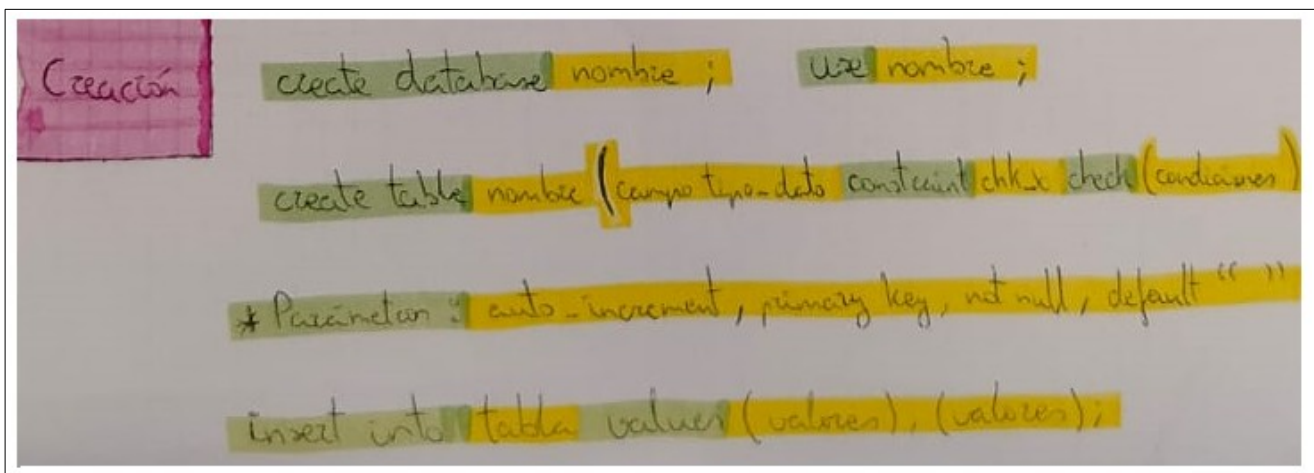 Creación
create database nombre ; use nombre ;
create table nombre (campo tipo_dato constraint chk_x check (condiciones)
* Parámetros : auto_increment, primary key, not null, default “ ”
insert into tabla values (valores), (valores);